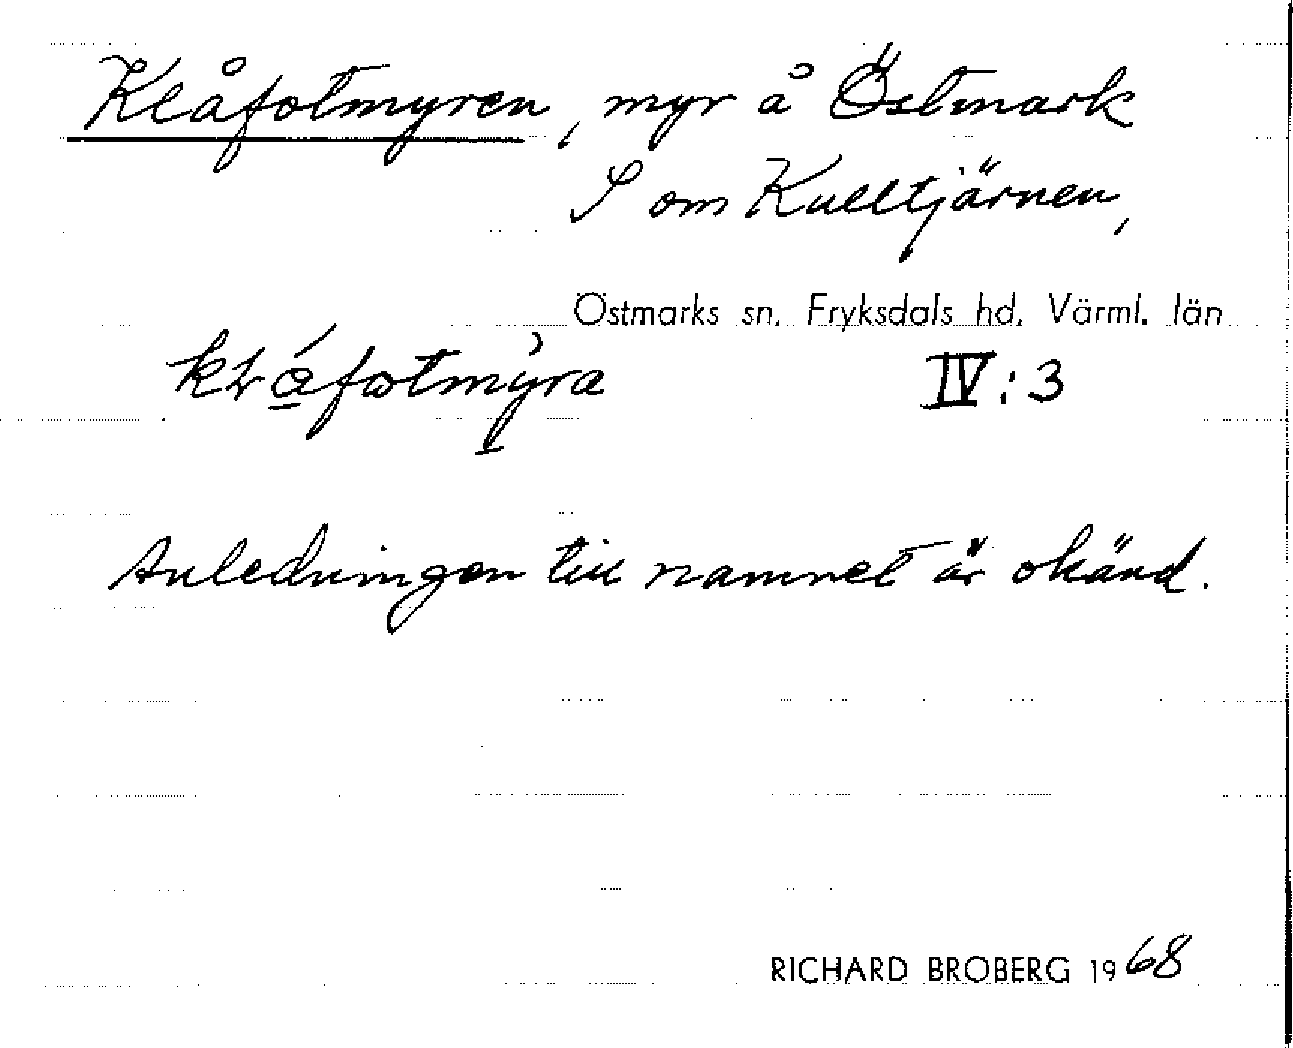 Klåfotmyren, myr å Östmark
S om Kulltjärnen,
Östmarks sn. Fryksdals hd. Värml. län
IV:3
Anledningen till namnet är okänd.
RICHARD BROBERG 1968